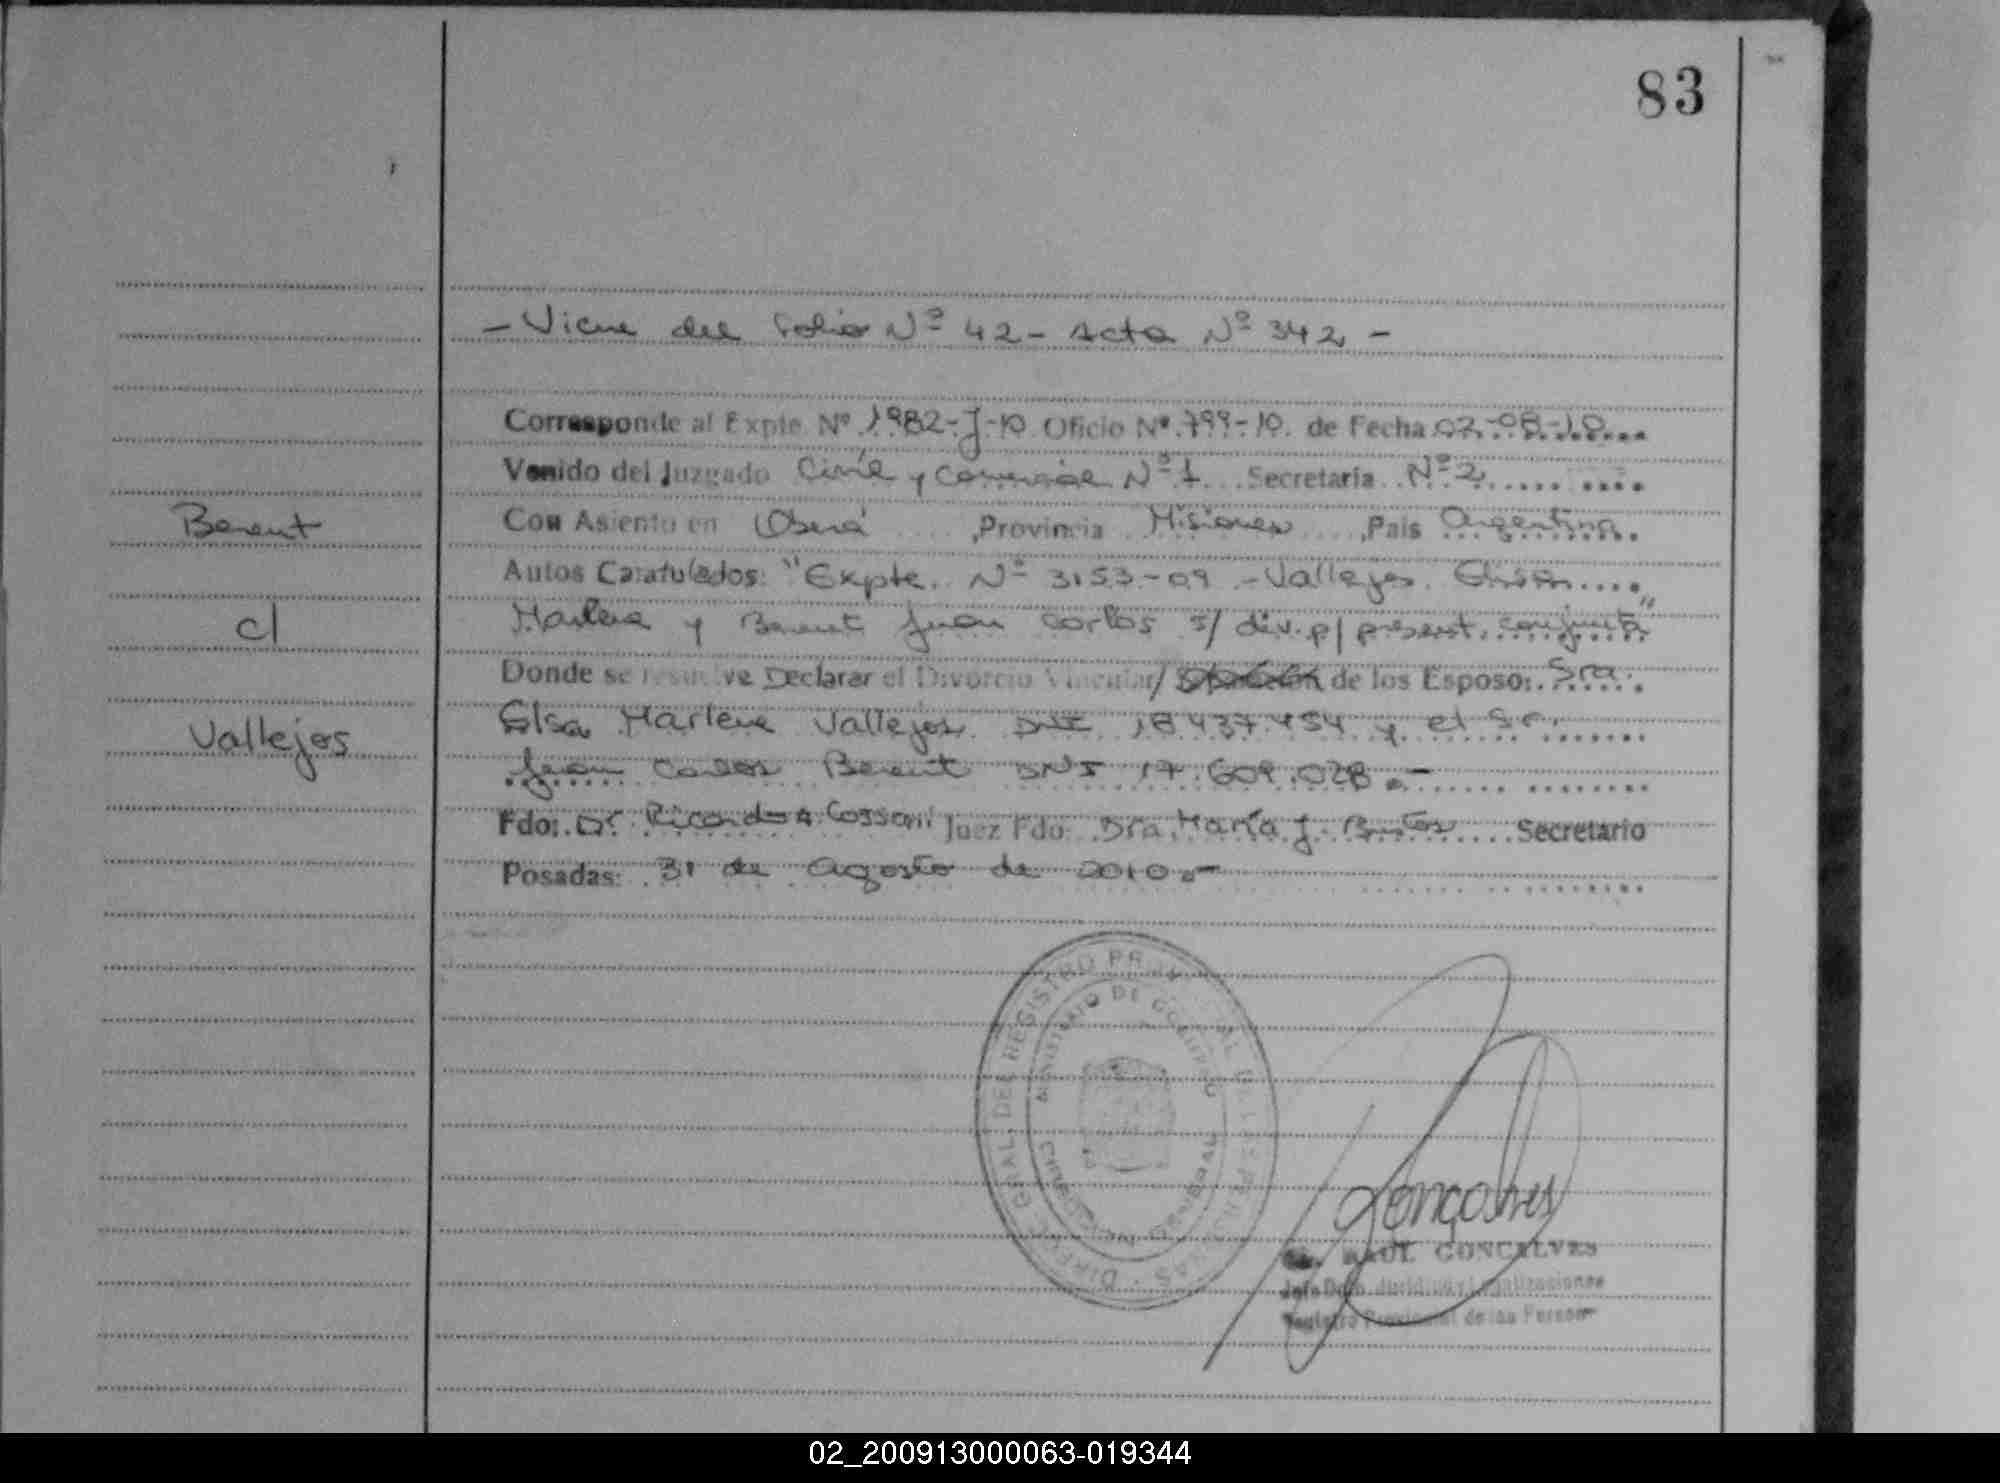 83
- Viene del Folio Nº 42 - Acta Nº 342 -
Corresponde al Expte Nº 1982-J-10 Oficio Nº 799-10. de Fecha 02-08-10
Venido del Juzgado Civil y Comercial Nº 1 Secretaria Nº 2
Con Asiento en Oberá ,Provincia Misiones ,Pais Argentina.
Autos Caratulados: "Expte. Nº 3153-09 - Vallejos Elisa
Marlene y Berent Juan Carlos s/ div. p/ present. conjunta"
Donde se resuelve Declarar el Divorcio Vincular/ de los Esposo: Sra.
Elsa Marlene Vallejos DNI 18.437.454 y el Sr.
Juan Carlos Berent DNI 17.609.028.-
Fdo: Dr. Ricardo A. Cassoni Juez Fdo: Dra. María J. Bustos Secretario
Posadas: 31 de agosto de 2010.-
Berent
c/
Vallejos
DIREC. GRAL. DEL REGISTRO PROVINCIAL DE LAS PERSONAS
MINISTERIO DE GOBIERNO
Goncalves
RAUL GONCALVES
Jefe Dpto. Juridico y Legalizaciones
Registro Provincial de las Person
02_200913000063-019344